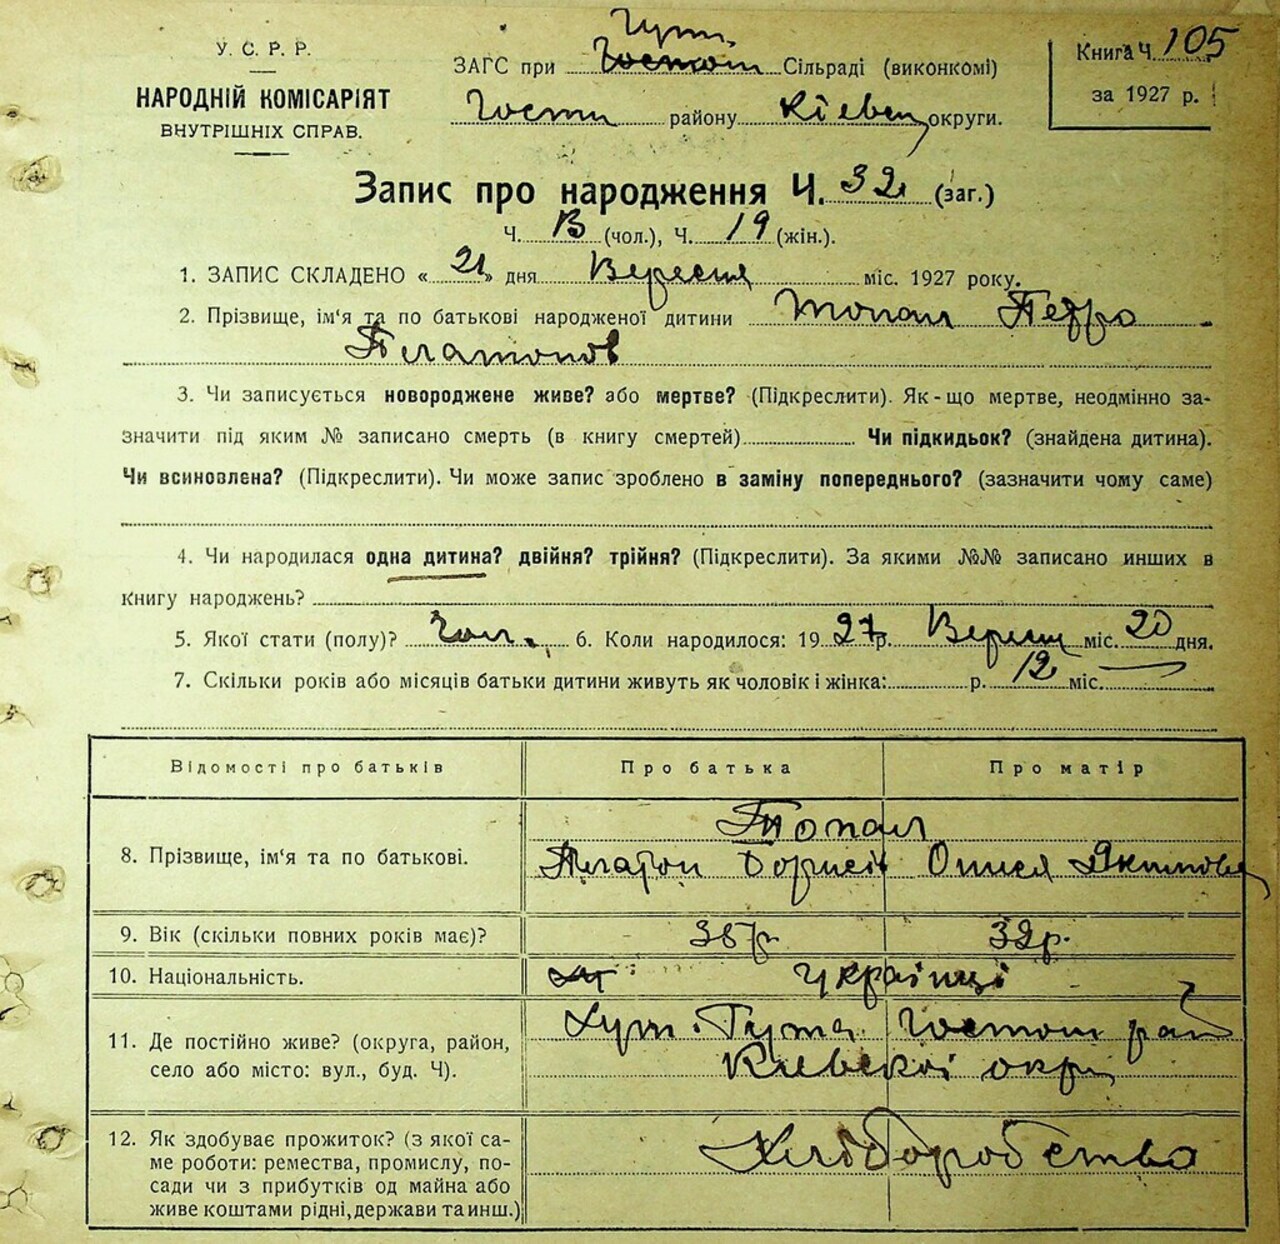 У. С. Р. Р.
НАРОДНІЙ КОМІСАРІЯТ
ВНУТРІШНІХ СПРАВ.
Гут.
ЗАГС при Гостом Сільраді (виконкомі)
Гости району Кіевск округи.
Книга Ч. 105
за 1927 р.
Запис про народження Ч. 32 (заг.)
Ч. 13 (чол.), Ч. 19 (жін.).
1. ЗАПИС СКЛАДЕНО « 21 » дня Вересня міс. 1927 року.
2. Прізвище, ім'я та по батькові народженої дитини Топал Петро
Платонов
3. Чи записується новороджене живе? або мертве? (Підкреслити). Як-що мертве, неодмінно за-
значити під яким № записано смерть (в книгу смертей) Чи підкидьок? (знайдена дитина).
Чи всиновлена? (Підкреслити). Чи може запис зроблено в заміну попереднього? (зазначити чому саме)
4. Чи народилася одна дитина? двійня? трійня? (Підкреслити). За якими №№ записано инших в
книгу народжень?
5. Якої стати (полу)? Чол. 6. Коли народилося: 1927 р. Вересня міс. 20 дня.
7. Скільки років або місяців батьки дитини живуть як чоловік і жінка: р. 12 міс.
Відомості про батьків Про батька Про матір
Топал
8. Прізвище, ім'я та по батькові. Платон Борисів Онися Якимова
9. Вік (скільки повних років має)? 32 р.
10. Національність. українці
11. Де постійно живе? (округа, район, Хут. Гута Гостом рай
село або місто: вул., буд. Ч). Киевскої окр
12. Як здобуває прожиток? (з якої са- Хліборобство
ме роботи: ремества, промислу, по-
сади чи з прибутків од майна або
живе коштами рідні, держави та инш.)